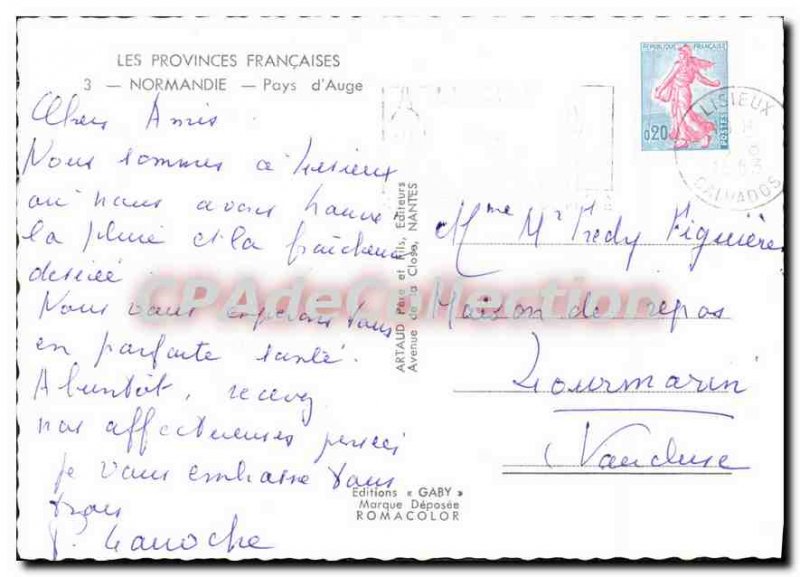 LES PROVINCES FRANÇAISES
3 — NORMANDIE — Pays d'Auge
Chers Amis
Nous sommes à Lisieux
où nous avons trouvé
la pluie et la fraîcheur
désirée
Nous vous espérons tous
en parfaite santé.
A bientôt, recevez
nos affectueuses pensées
je vous embrasse tous
P. Lanoche
ARTAUD Père et Fils, Editeurs
Avenue de la Close, NANTES
Editions « GABY »
Marque Déposée
ROMACOLOR
REPUBLIQUE FRANÇAISE
0,20
POSTES
LISIEUX
CALVADOS
Mme Mr Fredy Figuière
Maison de repos
Lourmarin
Vaucluse
CPAdeCollection.com